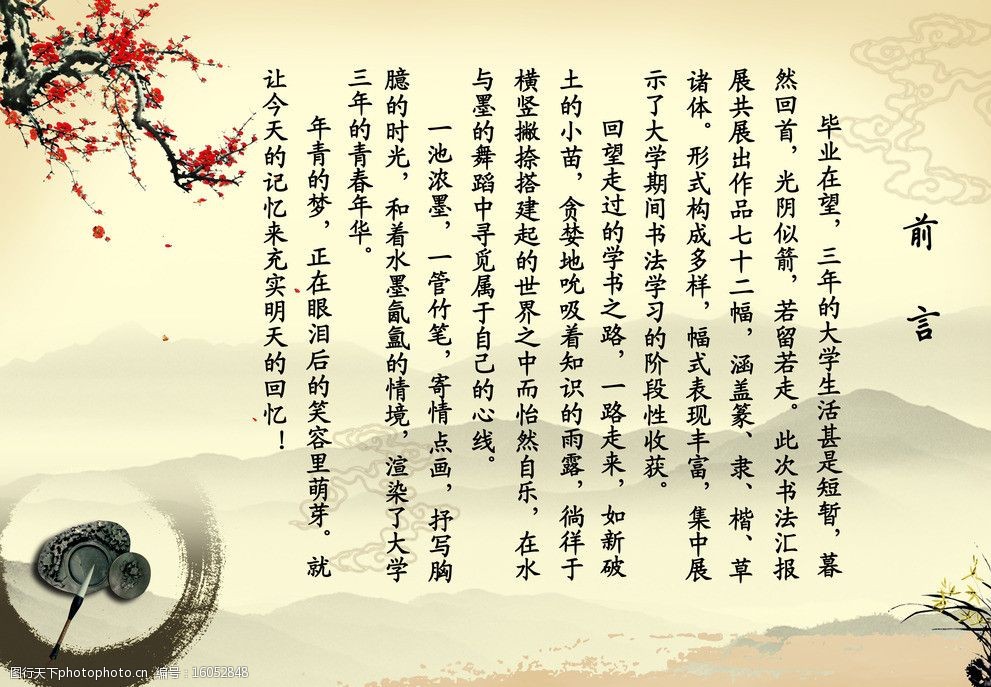 前言
毕业在望，三年的大学生活甚是短暂，暮
然回首，光阴似箭，若留若走。此次书法汇报
展共展出作品七十二幅，涵盖篆、隶、楷、草
诸体。形式构成多样，幅式表现丰富，集中展
示了大学期间书法学习的阶段性收获。
回望走过的学书之路，一路走来，如新破
土的小苗，贪婪地吮吸着知识的雨露，徜徉于
横竖撇捺搭建起的世界之中而怡然自乐，在水
与墨的舞蹈中寻觅属于自己的心线。
一池浓墨，一管竹笔，寄情点画，抒写胸
臆的时光，和着水墨氤氲的情境，渲染了大学
三年的青春年华。
年青的梦，正在眼泪后的笑容里萌芽。就
让今天的记忆来充实明天的回忆！
图行天下photophoto.cn 编号：16052848